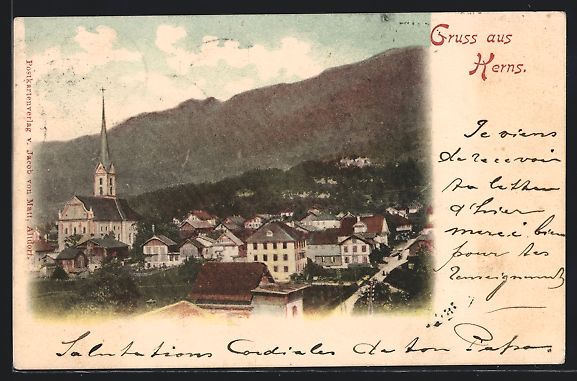 Gruss aus
Kerns.
Postkartenverlag v. Jacob von Matt, Altdorf.
Je viens
de recevoir
ta lettre
d'hier
merci bien
pour tes
renseignements
Salutations Cordiales de ton Papa.